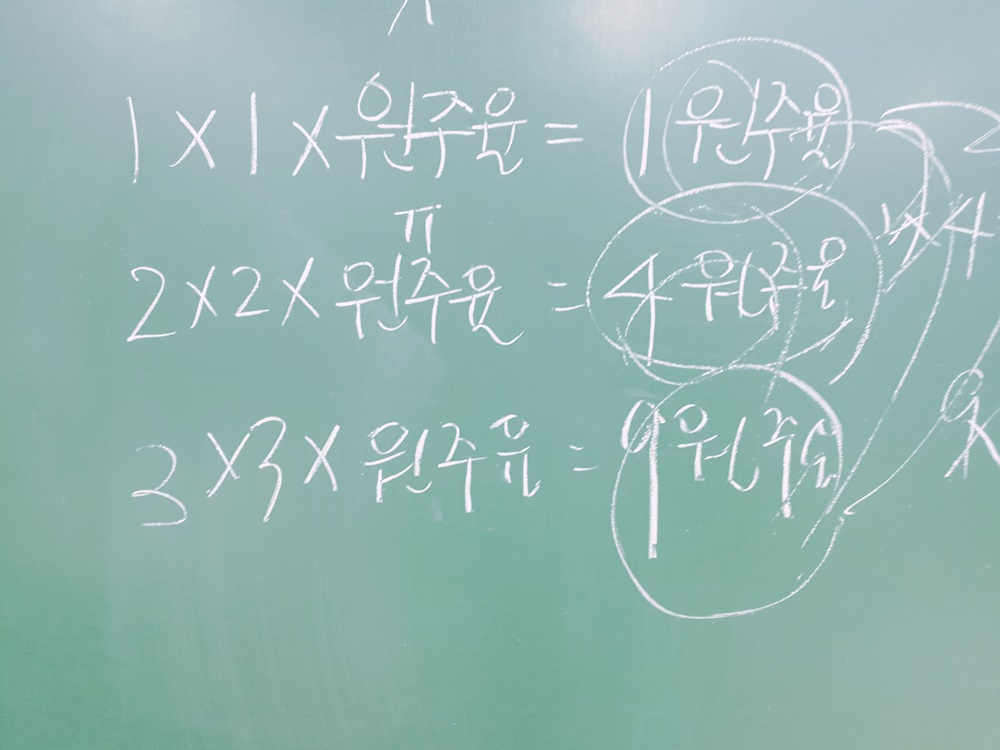 1×1×원주율=1원주율
π
2×2×원주율=4원주율 ×4
3×3×원주율=9원주율 9×